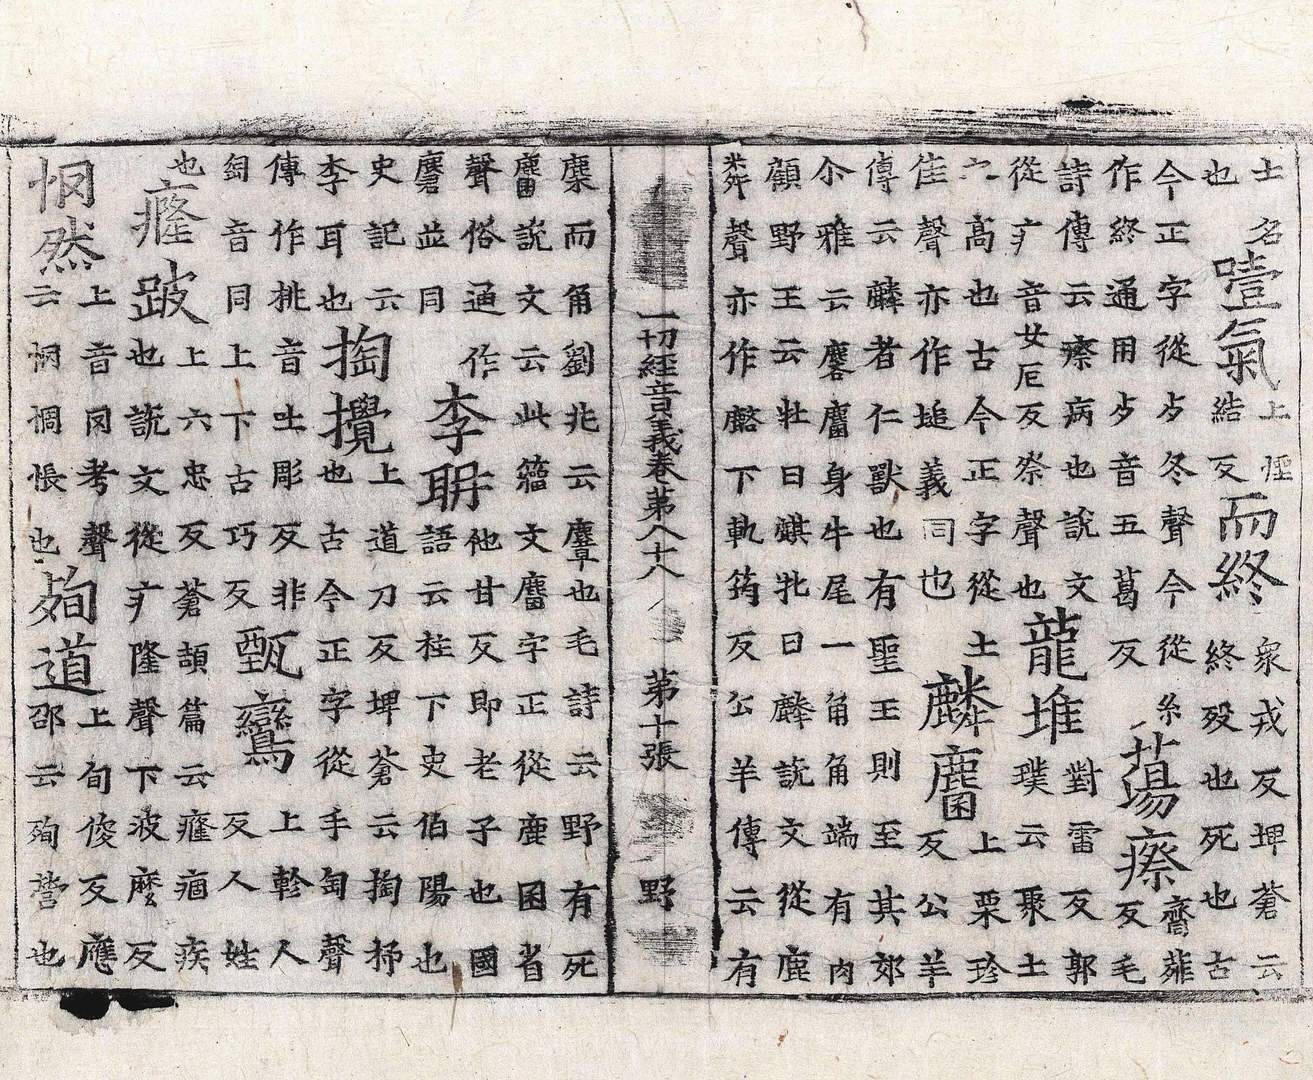 士名
也
噎氣
上煙
結反
而終
衆戎反埤蒼云
終歿也死也古
今正字從歺冬聲今從糸
作終通用歺音五葛反
蕩瘵
齋薤
反毛
詩傳云瘵病也說文
從疒音女厄反祭聲也
龍堆
對雷反郭
璞云聚土
高也古今正字從土
隹聲亦作塠義同也
麟麕
上栗珍
反公羊
傳云麟者仁獸也有聖王則至其郊
尒雅云麐麕身牛尾一角角端有肉
顧野王云牡曰麒牝曰麟說文從鹿
粦聲亦作下軌筠反公羊傳云有
一切經音義卷第八十八 第十張 野
麇而角劉兆云麞也毛詩云野有死
麕說文云此籀文麕字正從鹿囷省
聲俗通作
麏並同
李聃
他甘反即老子也國
語云柱下史伯陽也
史記云
李耳也
掏攪
上道刀反埤蒼云掏抒
也古今正字從手匋聲
傳作挑音土彫反非
匋音同上下古巧反
甄鸞
上軫人
反人姓
也
癃跛
上六忠反蒼頡篇云癃痼疾
也說文從疒隆聲下波麼反
惘然
上音罔考聲
云惘惆悵也
殉道
上旬俊反應
邵云殉營也